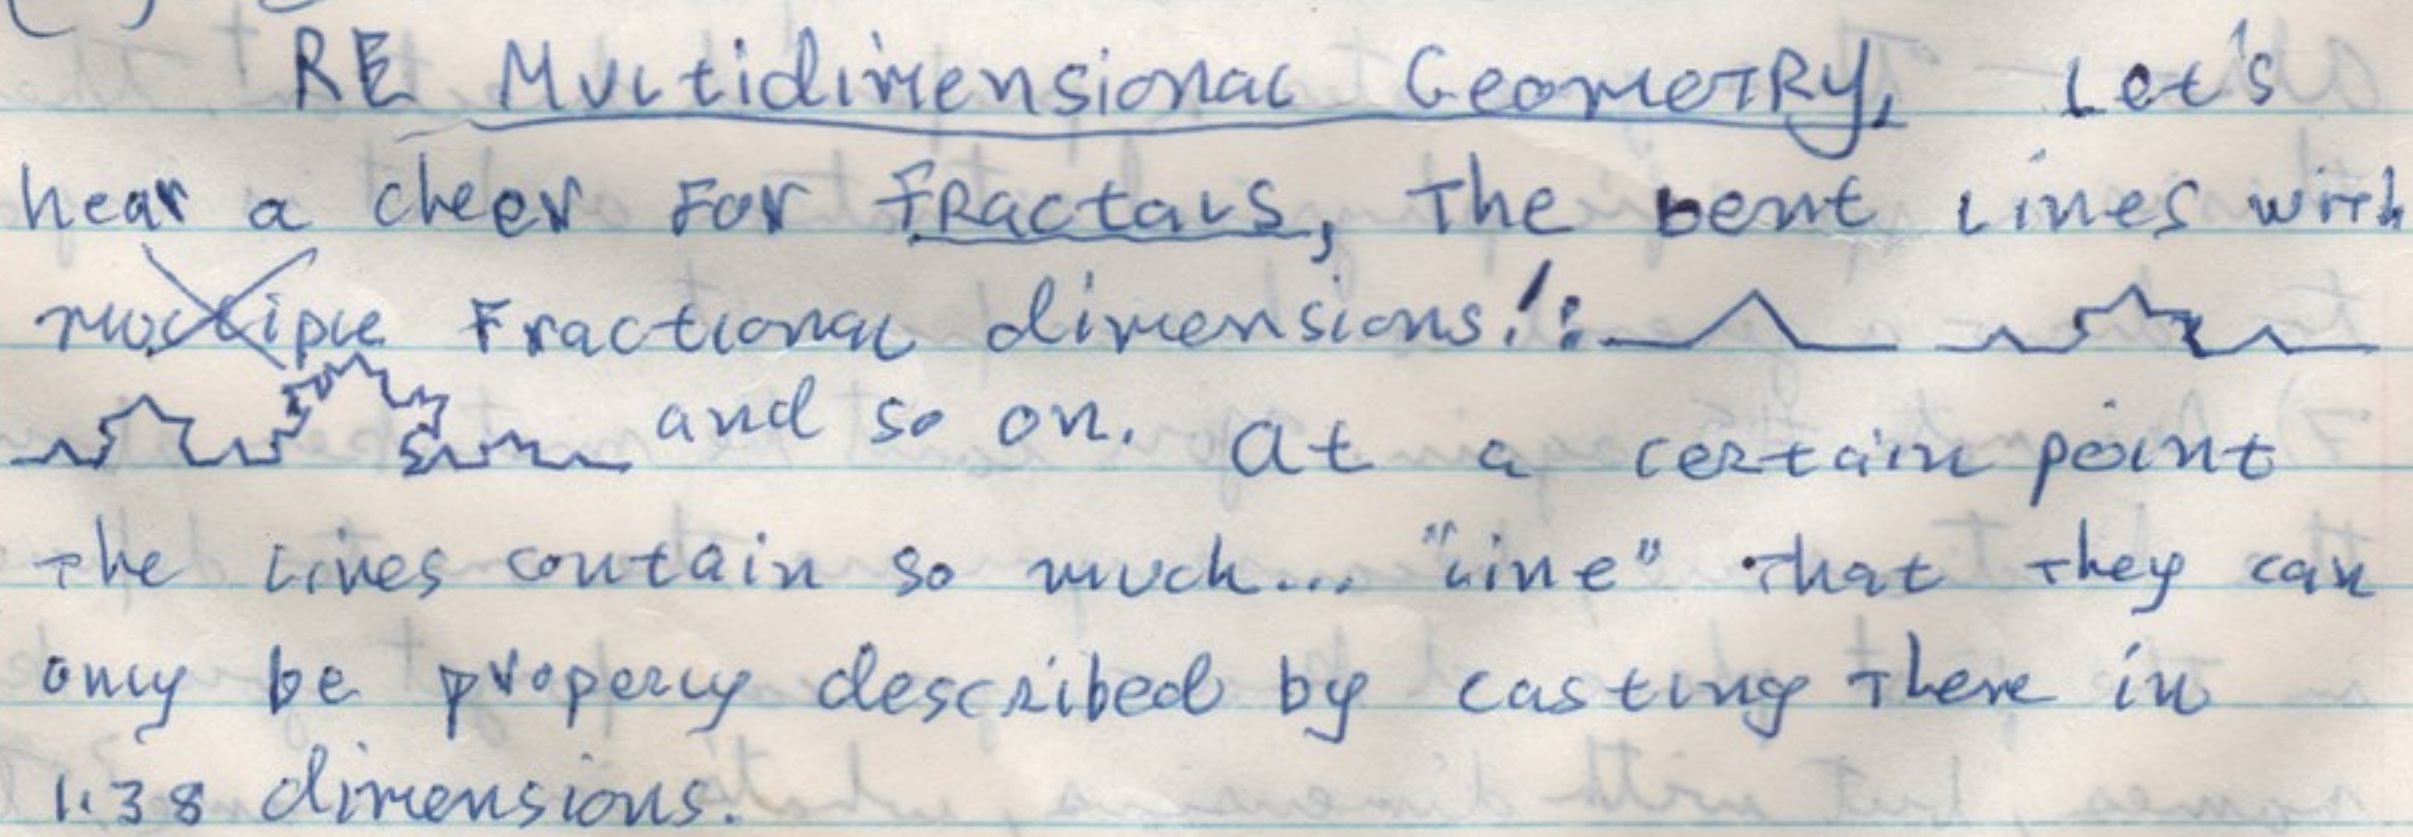 RE Multidimensional Geometry, Let's
hear a cheer for fractals, the bent lines with
multiple fractional dimensions!:
and so on. At a certain point
the lines contain so much... "line" that they can
only be properly described by casting them in
1.38 dimensions.